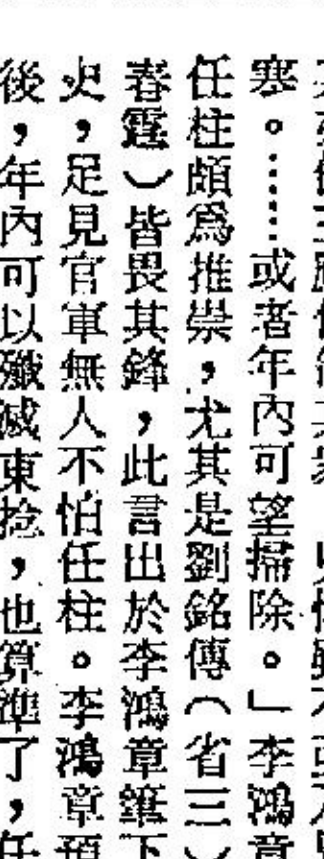 寒。……或者年內可望掃除。」李鴻章
任柱頗爲推崇,尤其是劉銘傳(省三)
春霆)皆畏其鋒,此言出於李鴻章筆下
史,足見官軍無人不怕任柱。李鴻章預
後,年內可以殲滅東捻,也算準了,任